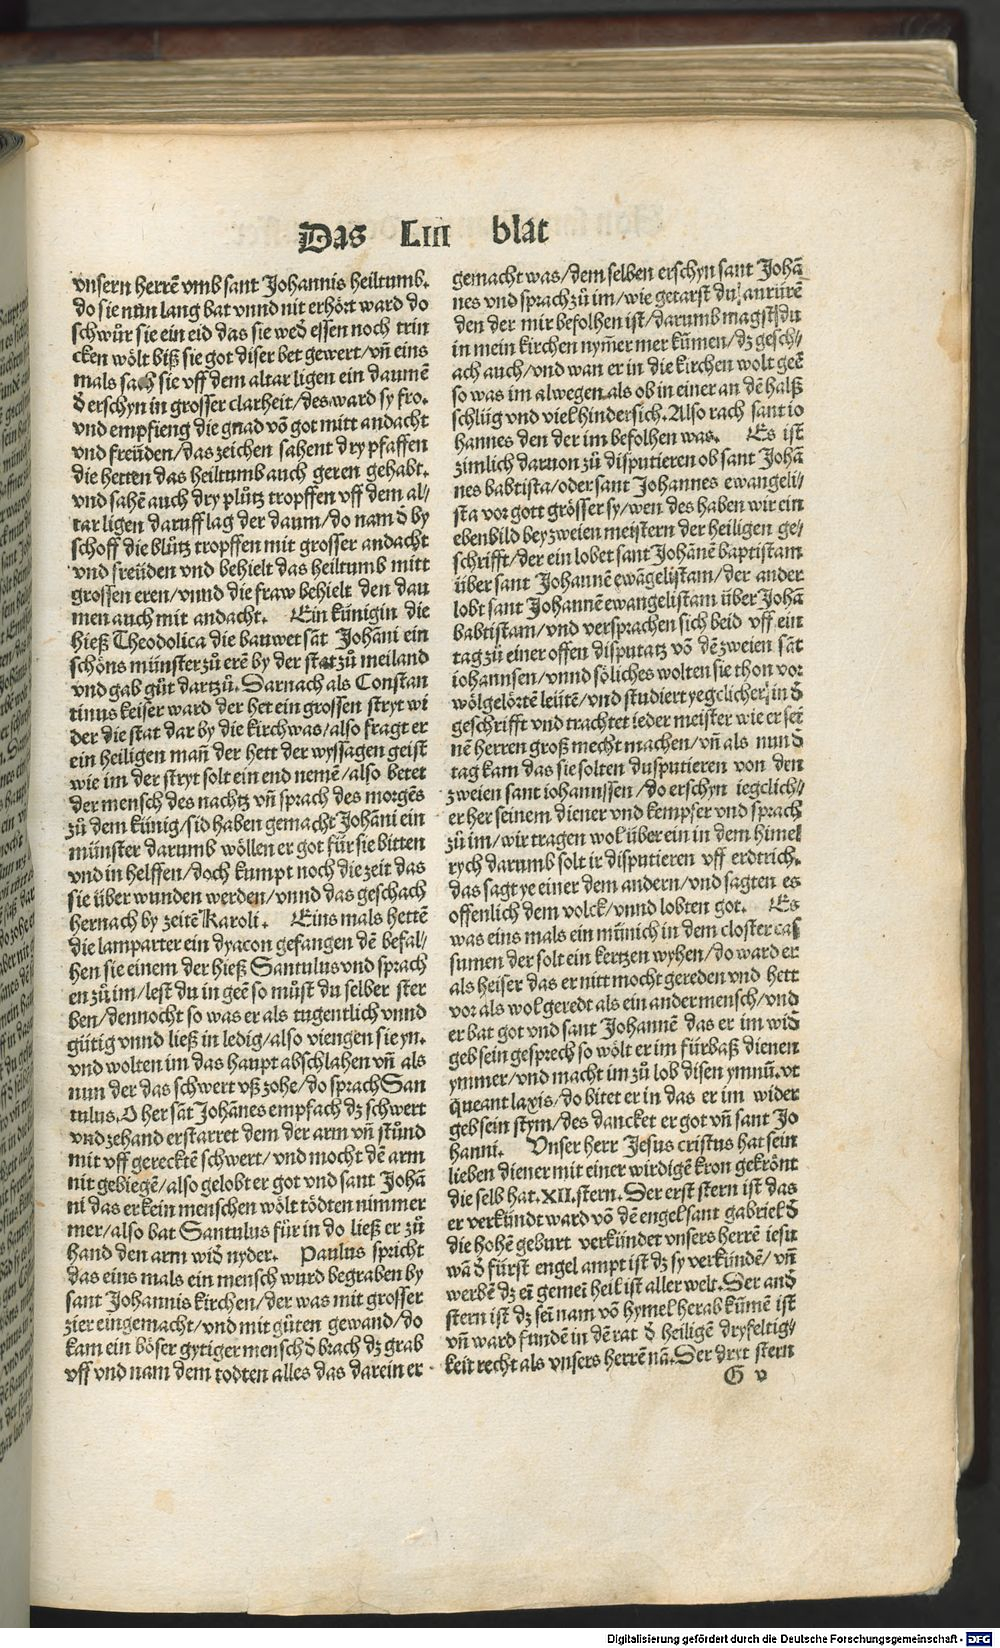 Das LIII blat
vnsern herrē vmb sant Johannis heiltumb.
do sie nun lang bat vnnd nit erhört ward do
schwůr sie ein eid das sie wed̄ essen noch trin
cken wölt biß sie got diser bet gewert/vn̄ eins
mals sach sie vff dem altar ligen ein daumē
d̄ erschyn in grosser clarheit/des ward sy fro.
vnd empfieng die gnad vō got mitt andacht
vnd freüden/das zeichen sahent dry pfaffen
die hetten das heiltumb auch geren gehabt.
vnd sahē auch dry plůtz tropffen vff dem al/
tar ligen daruff lag der daum/do nam d̄ by
schoff die blůtz tropffen mit grosser andacht
vnd freüden vnd behielt das heiltumb mitt
grossen eren/vnnd die fraw behielt den dau
men auch mit andacht. Ein künigin die
hieß Theodolica die bauwet sāt Johāni ein
schöns münster zů erē by der stat zů meiland
vnd gab gůt dartzů. Darnach als Constan
tinus keiser ward der het ein grossen stryt wi
der die stat dar by die kirch was/also fragt er
ein heiligen man̄ der hett der wyssagen geist
wie im der stryt solt ein end nemē/also betet
der mensch des nachtz vn̄ sprach des morgēs
zů dem künig/sid haben gemacht Johāni ein
münster darumb wöllen er got für sie bitten
vnd in helffen/doch kumpt noch die zeit das
sie über wunden werden/vnnd das geschach
hernach by zeitē Karoli. Eins mals hettē
die lamparter ein dyacon gefangen dē befal/
hen sie einem der hieß Santulus vnd sprach
en zů im/lest du in geē so můst du selber ster
ben/dennocht so was er als tugentlich vnnd
gütig vnnd ließ in ledig/also viengen sie yn.
vnd wolten im das haupt abschlahen vn̄ als
nun der das schwert vß zohe/do sprach San
tulus. O her sāt Johānes empfach dz schwert
vnd zehand erstarret dem der arm vn̄ stůnd
mit vff gerecktē schwert/vnd mocht dē arm
nit gebiegē/also gelobt er got vnd sant Johā
ni das er kein menschen wölt tödten nimmer
mer/also bat Santulus für in do ließ er zů
hand den arm wid̄ nyder. Paulus spricht
das eins mals ein mensch wurd begraben by
sant Johannis kirchen/der was mit grosser
zier eingemacht/vnd mit gůten gewand/do
kam ein böser gytiger mensch d̄ brach dz grab
vff vnd nam dem todten alles das darein er
gemacht was/dem selben erschyn sant Johā
nes vnd sprach zů im/wie getarst du anrürē
den der mir befolhen ist/darumb magst du
in mein kirchen nym̄er mer kūmen/dz gesch/
ach auch/vnd wan er in die kirchen wolt geē
so was im alwegen als ob in einer an dē halß
schlüg vnd viel hindersich. Also rach sant io
hannes den der im befolhen was. Es ist
zimlich daruon zů disputieren ob sant Johā
nes babtista/oder sant Johannes ewangeli/
sta vor gott grösser sy/wen des haben wir ein
ebenbild bey zweien meistern der heiligen ge/
schrifft/der ein lobet sant Johānē baptistam
über sant Johannē ewāgelistam/der ander
lobt sant Johannē ewangelistam über Johā
babtistam/vnd versprachen sich beid vff ein
tag zů einer offen disputatz vō dē zweien sāt
iohannsen/vnnd söliches wolten sie thon vor
wölgelörtē leütē/vnd studiert yegclicher in d̄
geschrifft vnd trachtet ieder meister wie er sei
nē herren groß mecht machen/vn̄ als nun d̄
tag kam das sie solten dusputieren von den
zweien sant iohannssen/do erschyn iegclich/
er her seinem diener vnd kempfer vnd sprach
zů im/wir tragen wol über ein in dem himel
rych darumb solt ir disputieren vff erdtrich.
das sagt ye einer dem andern/vnd sagten es
offenlich dem volck/vnnd lobten got. Es
was eins mals ein münich in dem closter cas
sumen der solt ein kertzen wyhen/do ward er
als heiser das er nitt mocht gereden vnd hett
vor als wol geredt als ein ander mensch/vnd
er bat got vnd sant Johannē das er im wid̄
geb sein gesprech so wölt er im fürbaß dienen
ymmer/vnd macht im zů lob disen ymnū. vt
queant laxis/do bitet er in das er im wider
geb sein stym/des dancket er got vn̄ sant Jo
hanni. Vnser herr Jesus cristus hat sein
lieben diener mit einer wirdigē kron gekrönt
die selb hat. XII. stern. Der erst stern ist das
er verkündt ward vō dē engel sant gabriel d̄
die hohē geburt verkündet vnsers herrē iesu
wā d̄ fürst engel ampt ist dz sy verkündē/vn̄
werbē dz eī gemeī heil ist aller welt. Der and̄
stern ist dz seī nam vō hymel herab kūmē ist
vn̄ ward fundē in dē rat d̄ heiligē dryfeltig/
keit recht als vnsers herrē nā. Der dryt stern
G v
Digitalisierung gefördert durch die Deutsche Forschungsgemeinschaft - DFG